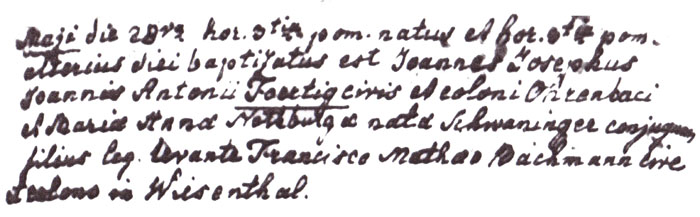 Maji die 28va hor. 3tia pom. natus et hor. 3tia pom.
alterius diei baptizatus est Joannes Josephus
Joannis Antonii Foertig civis et coloni Ohrenbaci
et Maria Anna Nottburga nata Schwaninger conjugum,
filius leg. levante Francisco Matheo Bachmann cive
et colono in Wisenthal.